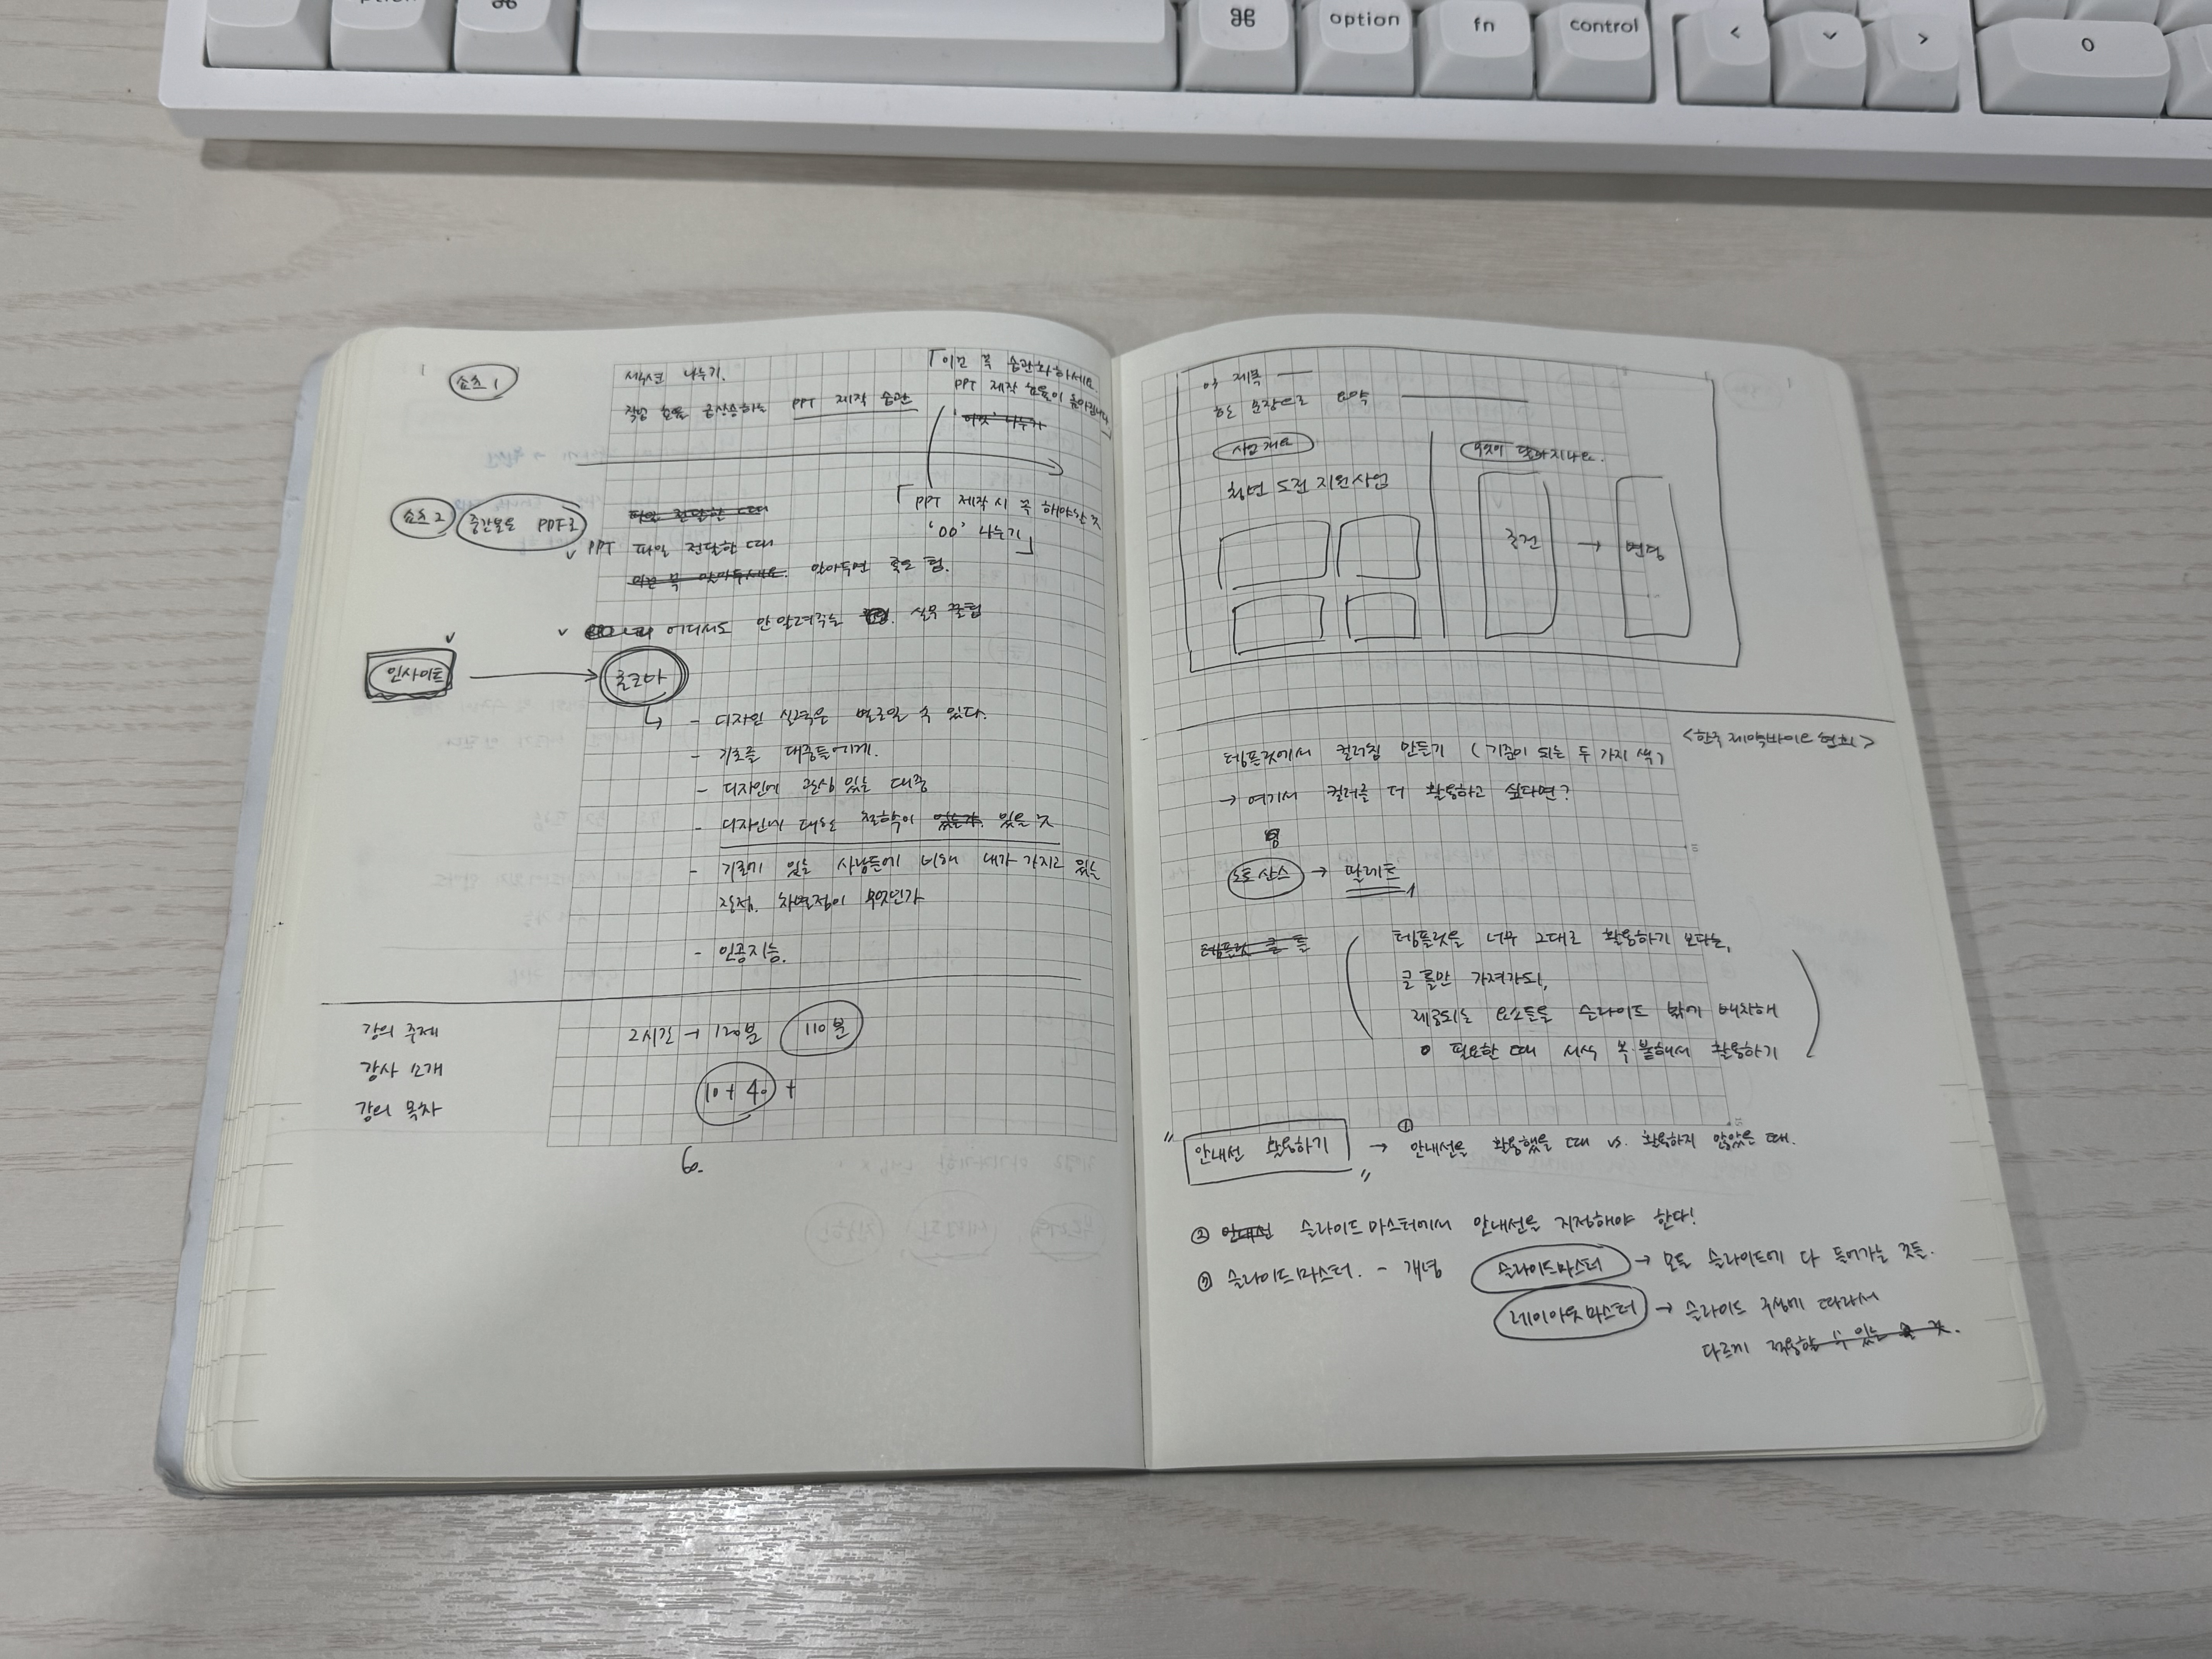 option
⌘
⌘
option
fn
control
<
>
0
쇼츠 1
섹션 나누기.
작업 효율 급상승하는 PPT 제작 습관
「이건 꼭 습관화하세요.
PPT 제작 효율이 높아집니다」
쇼츠 2
중간물은 PDF로
「PPT 제작 시 꼭 해야하는 것
'00' 나누기」
파일 전달할 때
PPT 파일 전달할 때
이건 꼭 알아두세요. 알아두면 좋은 팁.
어디서도 안 알려주는 실무 꿀팁
인사이트
- 디자인 실력은 별로일 수 있다.
- 기초를 대중들에게.
- 디자인에 관심 있는 대중
- 디자인에 대한 철학이 있는가. 있을 것
- 기존에 있는 사람들에 비해 내가 가지고 있는
장점. 차별점이 무엇인가
- 인공지능.
강의 주제
2시간 → 120분 110분
강사 소개
10 + 40 +
강의 목차
60.
01 제목
한 문장으로 요약
사업개요
무엇이 달라지나요.
청년 도전 지원사업
조건 → 변경
<한국 제약바이오 협회>
템플릿에서 컬러칩 만들기 (기준이 되는 두 가지 색)
→ 여기서 컬러를 더 활용하고 싶다면?
→ 팔레트
템플릿 큰 틀
템플릿을 너무 그대로 활용하기 보다는,
큰 틀만 가져가되,
제공되는 요소들을 슬라이드 밖에 배치해
필요한 때 서식 복·붙해서 활용하기
"안내선 활용하기"
→ ① 안내선을 활용했을 때 vs. 활용하지 않았을 때.
② 안내선 슬라이드 마스터에서 안내선을 지정해야 한다!
③ 슬라이드 마스터. - 개념 슬라이드마스터 → 모든 슬라이드에 다 들어가는 것들.
레이아웃마스터 → 슬라이드 구성에 따라서
다르게 적용할 수 있는 것.